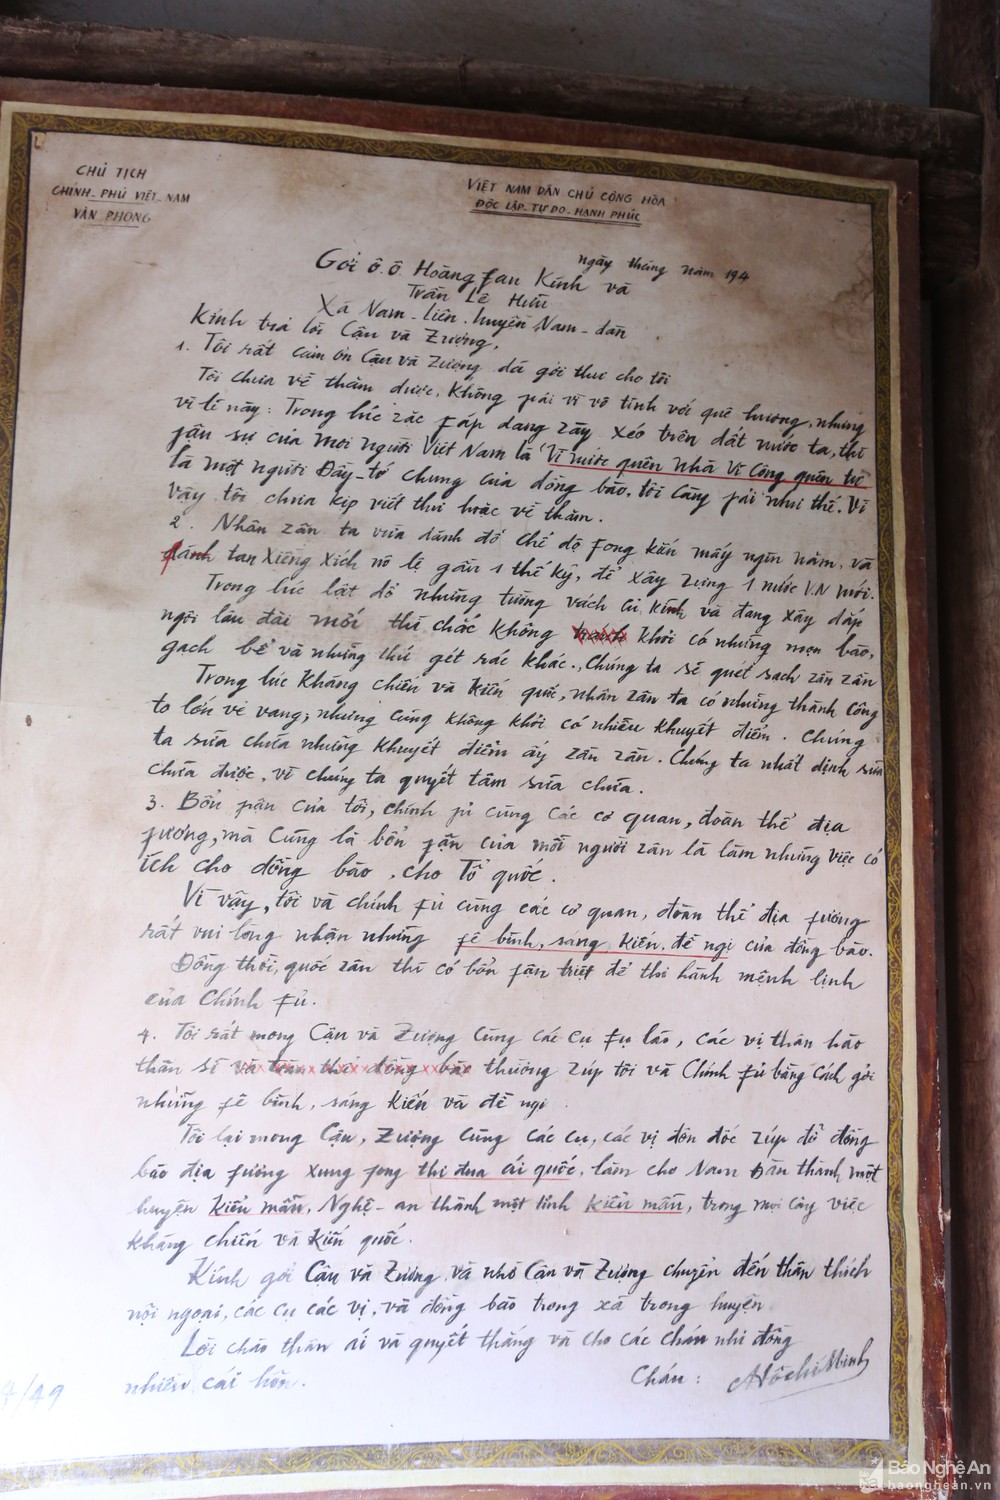 CHỦ TỊCH
CHÍNH-PHỦ VIỆT-NAM
VĂN PHÒNG
VIỆT NAM DÂN CHỦ CỘNG HÒA
ĐỘC LẬP-TỰ DO-HẠNH PHÚC
ngày tháng năm 194
Gởi ô.ô Hoàng fan Kính và
Trần Lê Hữu
Xã Nam-Liên. huyện Nam-dàn
Kính trả lời Cậu và Zượng,
1. Tôi rất cảm ơn Cậu và Zượng đã gởi thư cho tôi
Tôi chưa về thăm được, Không pải vì vô tình với quê hương, nhưng
vì lí này: Trong lúc zặc fáp đang zầy xéo trên đất nước ta, thì
fận sự của mọi người Việt Nam là Vì nước quên nhà Vì Công quên tư
là một người Đầy-tớ chung của đồng bào, tôi càng fải như thế. Vì
vậy tôi chưa kịp viết thư hoặc về thăm.
2. Nhân zân ta vừa đánh đổ chế độ fong kiến mấy ngìn năm, và
đánh tan xiềng xích nô lệ gần 1 thế kỷ, để xây zựng 1 nước V.N mới.
Trong lúc lật đổ những tường vách cũ kính và đang xây đắp
ngôi lâu đài mới thì chắc không tránh khỏi có những mẹn bào,
gạch bể và những thứ gét rác khác., Chúng ta sẽ quét sạch zần zần
Trong lúc Kháng chiến và Kiến quốc, nhân zân ta có những thành công
to lớn vẻ vang, nhưng cũng không khỏi có nhiều khuyết điểm. Chúng
ta sửa chữa những khuyết điểm ấy zần zần. Chúng ta nhất định sửa
chữa được, vì chúng ta quyết tâm sửa chữa.
3. Bổn fận của tôi, chính fủ cùng các cơ quan, đoàn thể địa
fương, mà cũng là bổn fận của mỗi người zân là làm những việc có
ích cho đồng bào, cho Tổ quốc.
Vì vậy, tôi và chính fủ cùng các cơ quan, đoàn thể địa fương
rất vui lòng nhận những fê bình, sáng Kiến, đề ngị của đồng bào.
Đồng thời, quốc zân thì có bổn fận triệt để thi hành mệnh lịnh
của Chính fủ.
4. Tôi rất mong Cậu và Zượng cùng các cụ fụ lão, các vị thân hào
thân sĩ và toàn thể đồng bào thường zúp tôi và Chính fủ bằng cách gởi
những fê bình, sáng Kiến và đề ngị.
Tôi lại mong Cậu, Zượng cùng các cụ, các vị đôn đốc zúp đỡ đồng
bào địa fương xung fong thi đua ái quốc, làm cho Nam Đàn thành một
huyện Kiểu mẫu, Nghệ-an thành một tỉnh kiểu mẫu, trong mọi công việc
kháng chiến và Kiến quốc.
Kính gởi Cậu và Zượng và nhờ Cậu và Zượng chuyển đến thân thích
nội ngoại, các cụ các vị, và đồng bào trong xã trong huyện
Lời chào thân ái và quyết thắng và cho các cháu nhi đồng
nhiều cái hôn.
Cháu: Hồ chí Minh
4/49
Báo Nghệ An
baonghean.vn